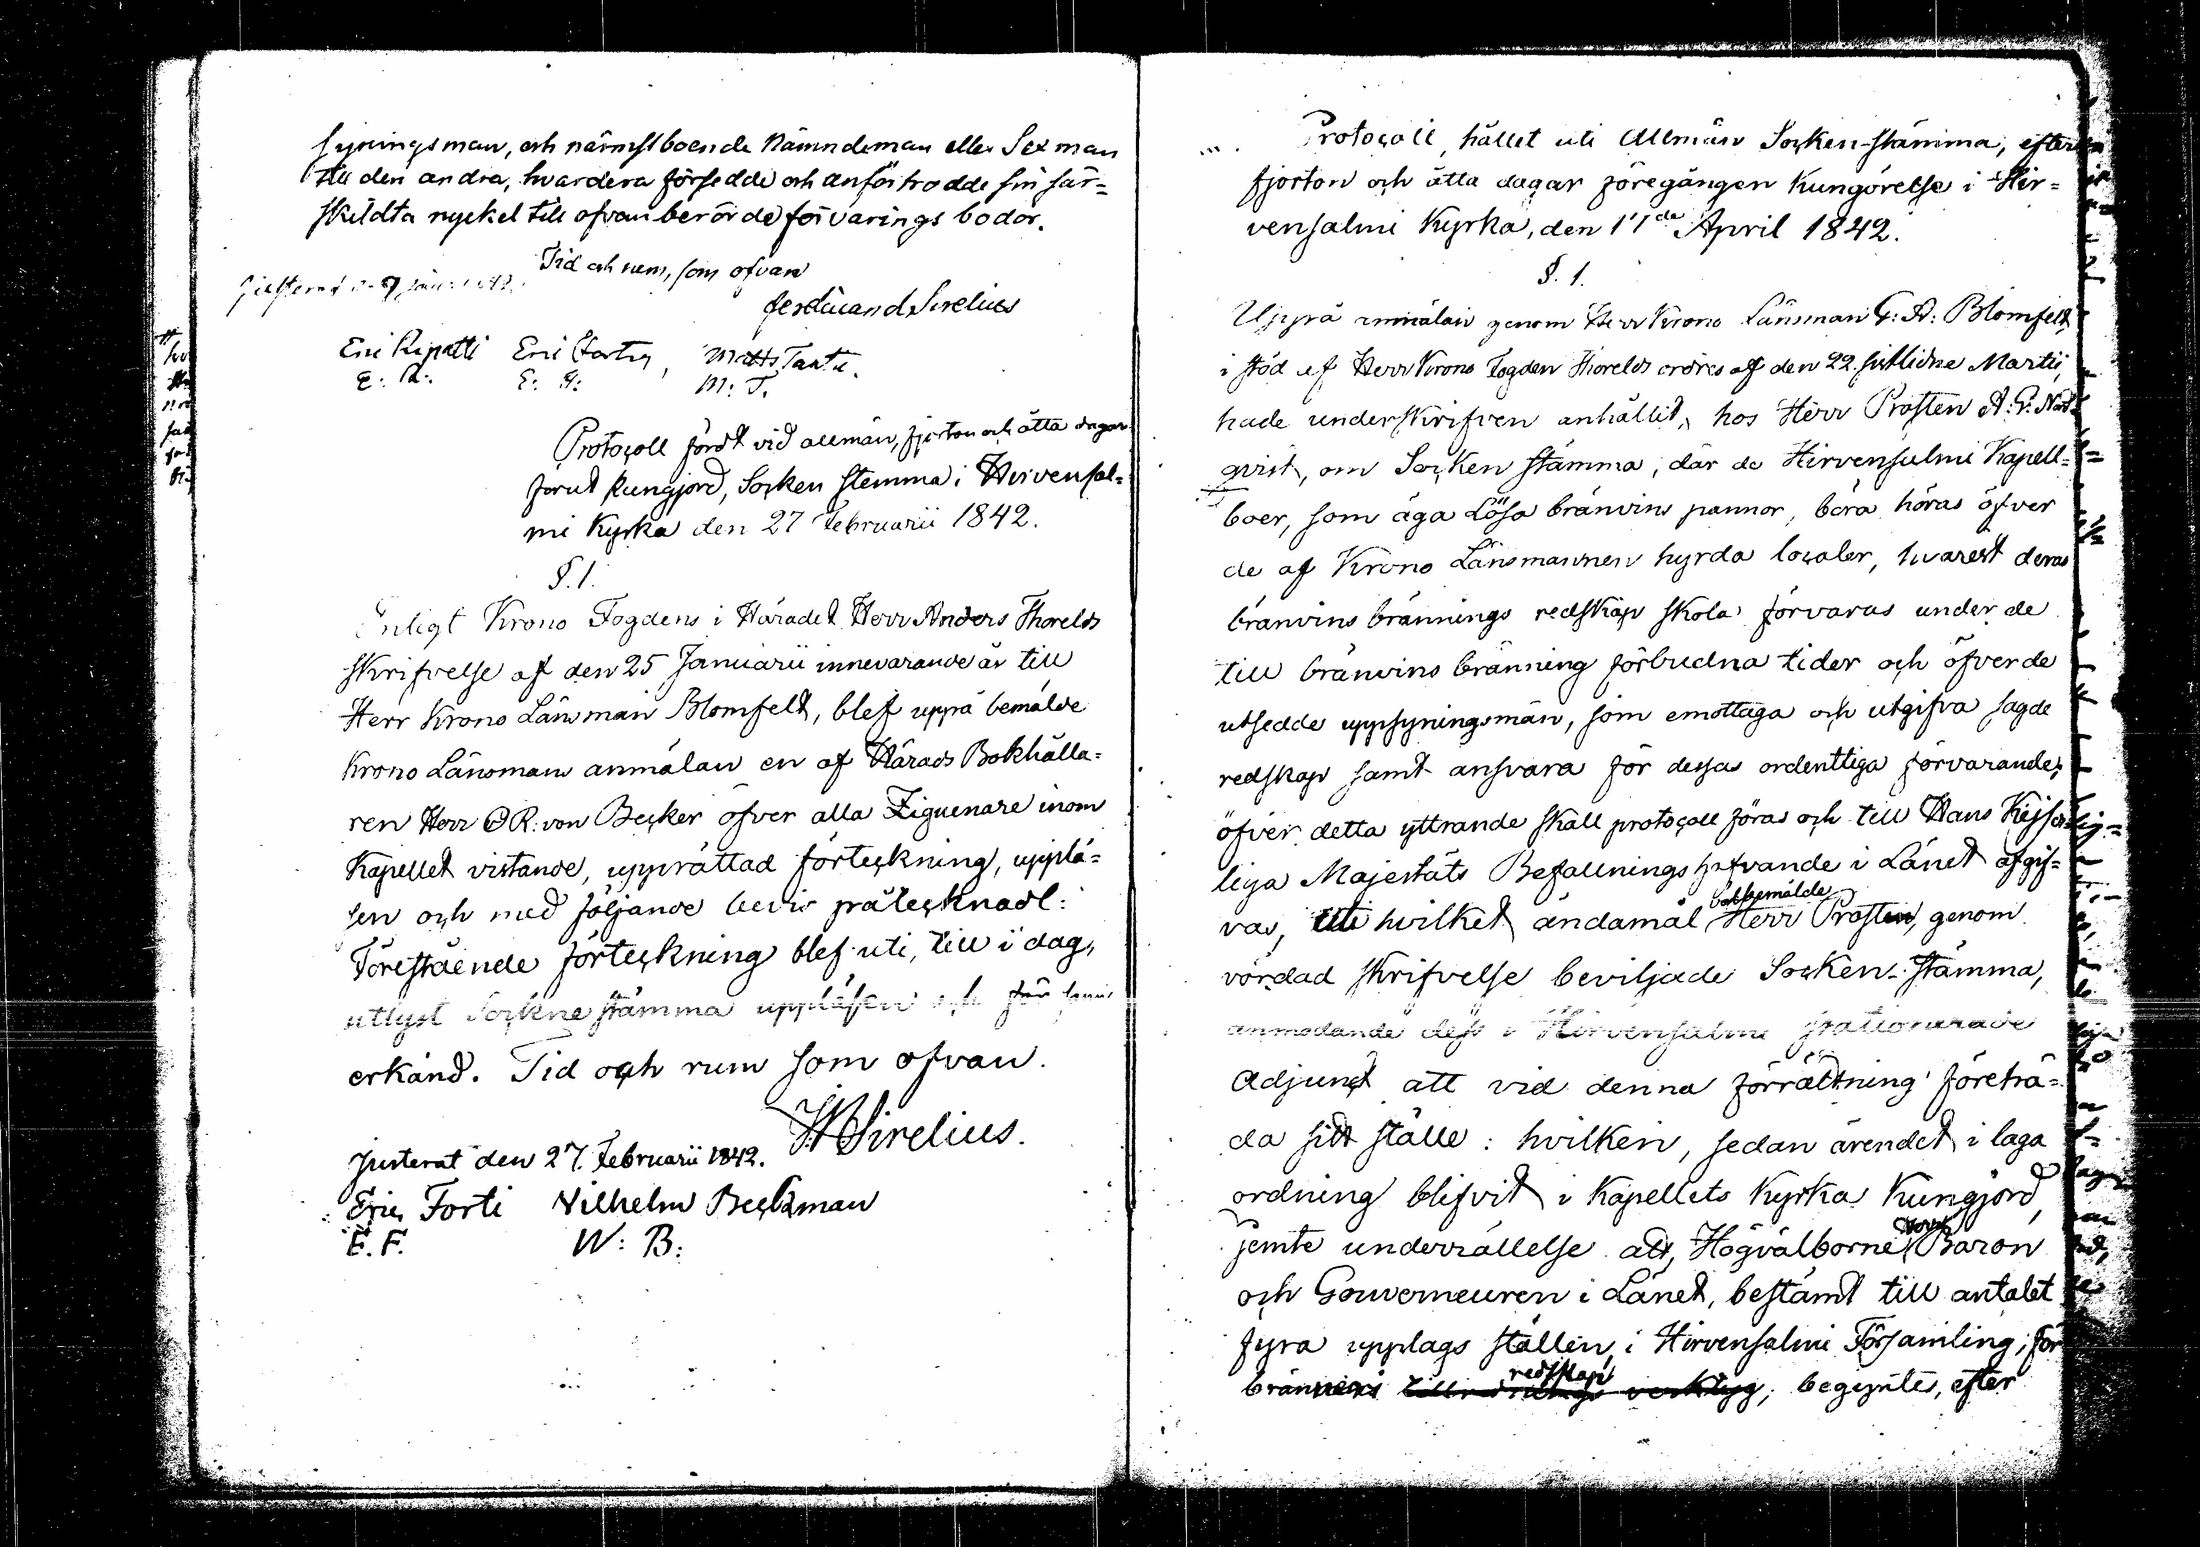 syningsman, och närmst boende Nämndeman eller Sexman
till den andra, hvardera försedde och anförtrodde sin sär=
skildta nyckel till ofvanberörde förvarings bodor.
Tid och rum, som ofvan
Ferdinand Sirelius
Eric Ripatti Eric Matts Tarti
E: R: E: M: T.
Protocoll fördt vid allmän, fjorton och åtta dagar
förut kungjord, Socken stemma i Hirvensal=
mi Kyrka den 27 Februarii 1842.
§.1.
Enligt Krono Fogdens i Häradet Herr Anders Thorelds
skrifvelse af den 25 Januarii innevarande år till
Herr Krono Länsman Blomfelt, blef uppå bemälde
Krono Länsmans anmälan en af Härads Bokhålla=
ren Herr O R: von Becker öfver alla Ziguenare inom
Kapellet vistande, upprättad förteckning, upplä=
sen och med följande bevis påtecknad:
Förestående förteckning blef uti, till i dag,
utlyst Sockne stämma uppläsen och för
erkänd. Tid och rum som ofvan.
Sirelius.
Justerat den 27. Februarii 1842.
Eric Forti Vilhelm Beckman
E. F. W: B:
Protocoll, hållet uti Allmän Socken-stämma, efter
fjorton och åtta dagar föregången Kungörelse i Hir=
vensalmi Kyrka, den 17de April 1842.
§. 1.
Uppå anmälan genom Herr Krono Länsman G: A: Blomfelt
i stöd af Herr Krono Fogden Thorelds ordres af den 22. sistlidne Martii,
hade underskrifven anhållit, hos Herr Prosten A: G: Nord=
qvist, om Socken stämma, där de Hirvensalmi Kapell=
boer, som äga Lösa bränvins pannor, böra höras öfver
de af Krono Länsmannen hyrda localer, hvarest deras
bränvins brännings redskap skola förvaras under de
till bränvins bränning förbudna tider och öfver de
utsedde uppsyningsmän, som emottaga och utgifva sagde
redskap samt ansvara för dessas ordentliga förvarande;
öfver detta yttrande skall protocoll föras och till Hans Kejser=
liga Majestäts Befallnings hafvande i Länet afgif=
vas, uti hvilket ändamål välbemälde Herr Prosten, genom
vördad skrifvelse beviljade Socken-stämma,
anmodande dess i Hirvensalmi stationerade
Adjunct att vid denna förrättning företrä=
da sitt ställe: hvilken, sedan ärendet i laga
ordning blifvit i Kapellets Kyrka Kungjord,
jemte underrättelse att, Högvälborne Herr Baron
och Gouverneuren i Länet, bestämt till antalet
fyra upplags ställen i Hirvensalmi Församling, för
bränneri redskap, begynte, efter